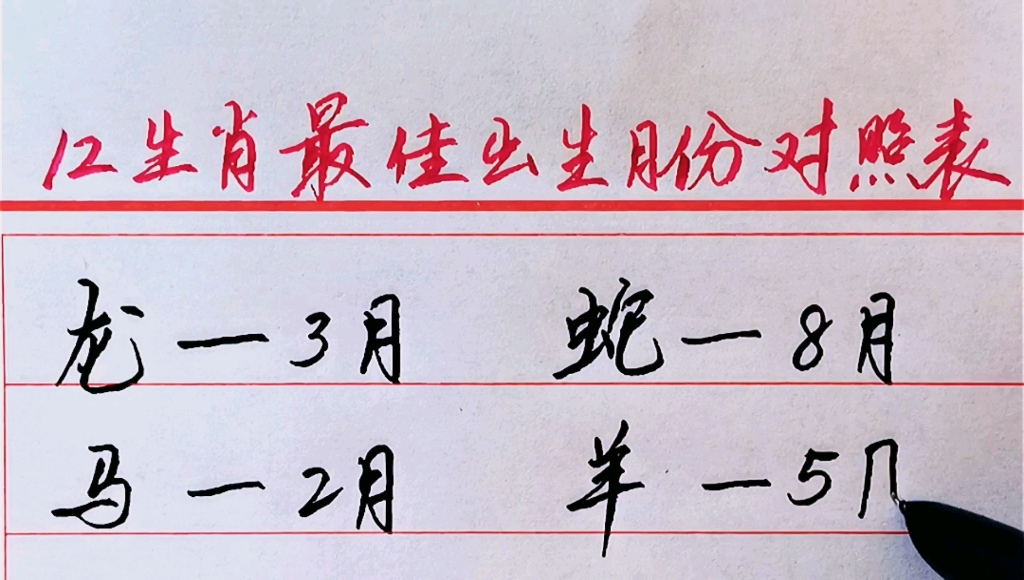 12生肖最佳出生月份对照表
龙—3月 蛇—8月
马—2月 羊—5